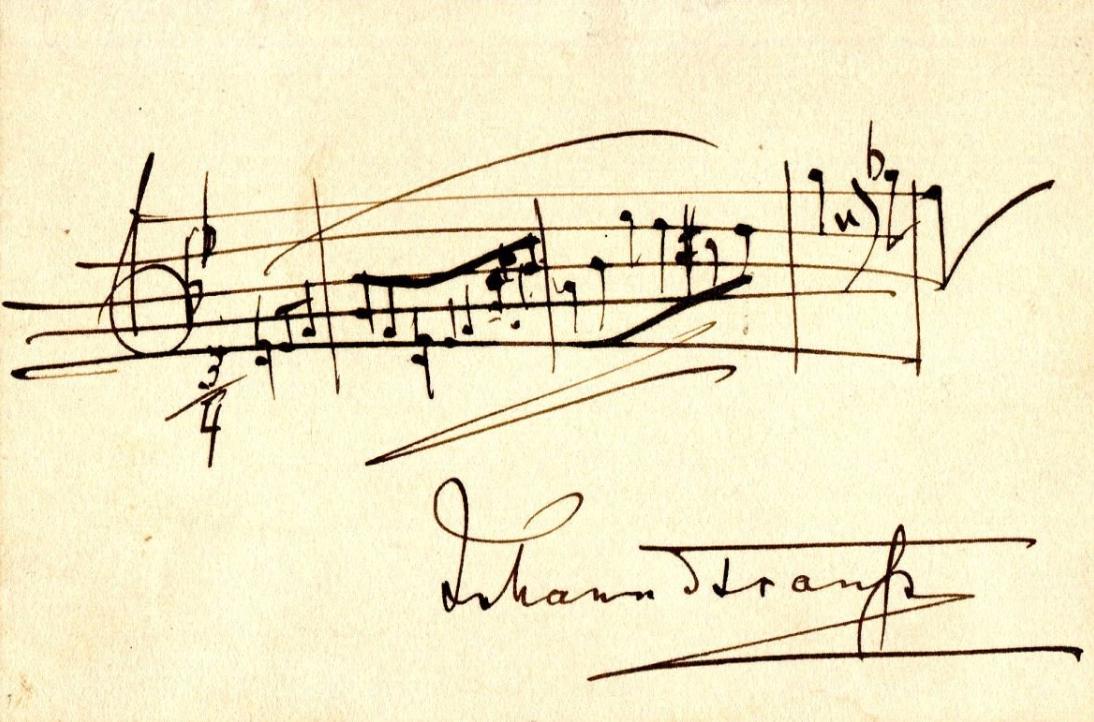 3
4
Johann Strauß